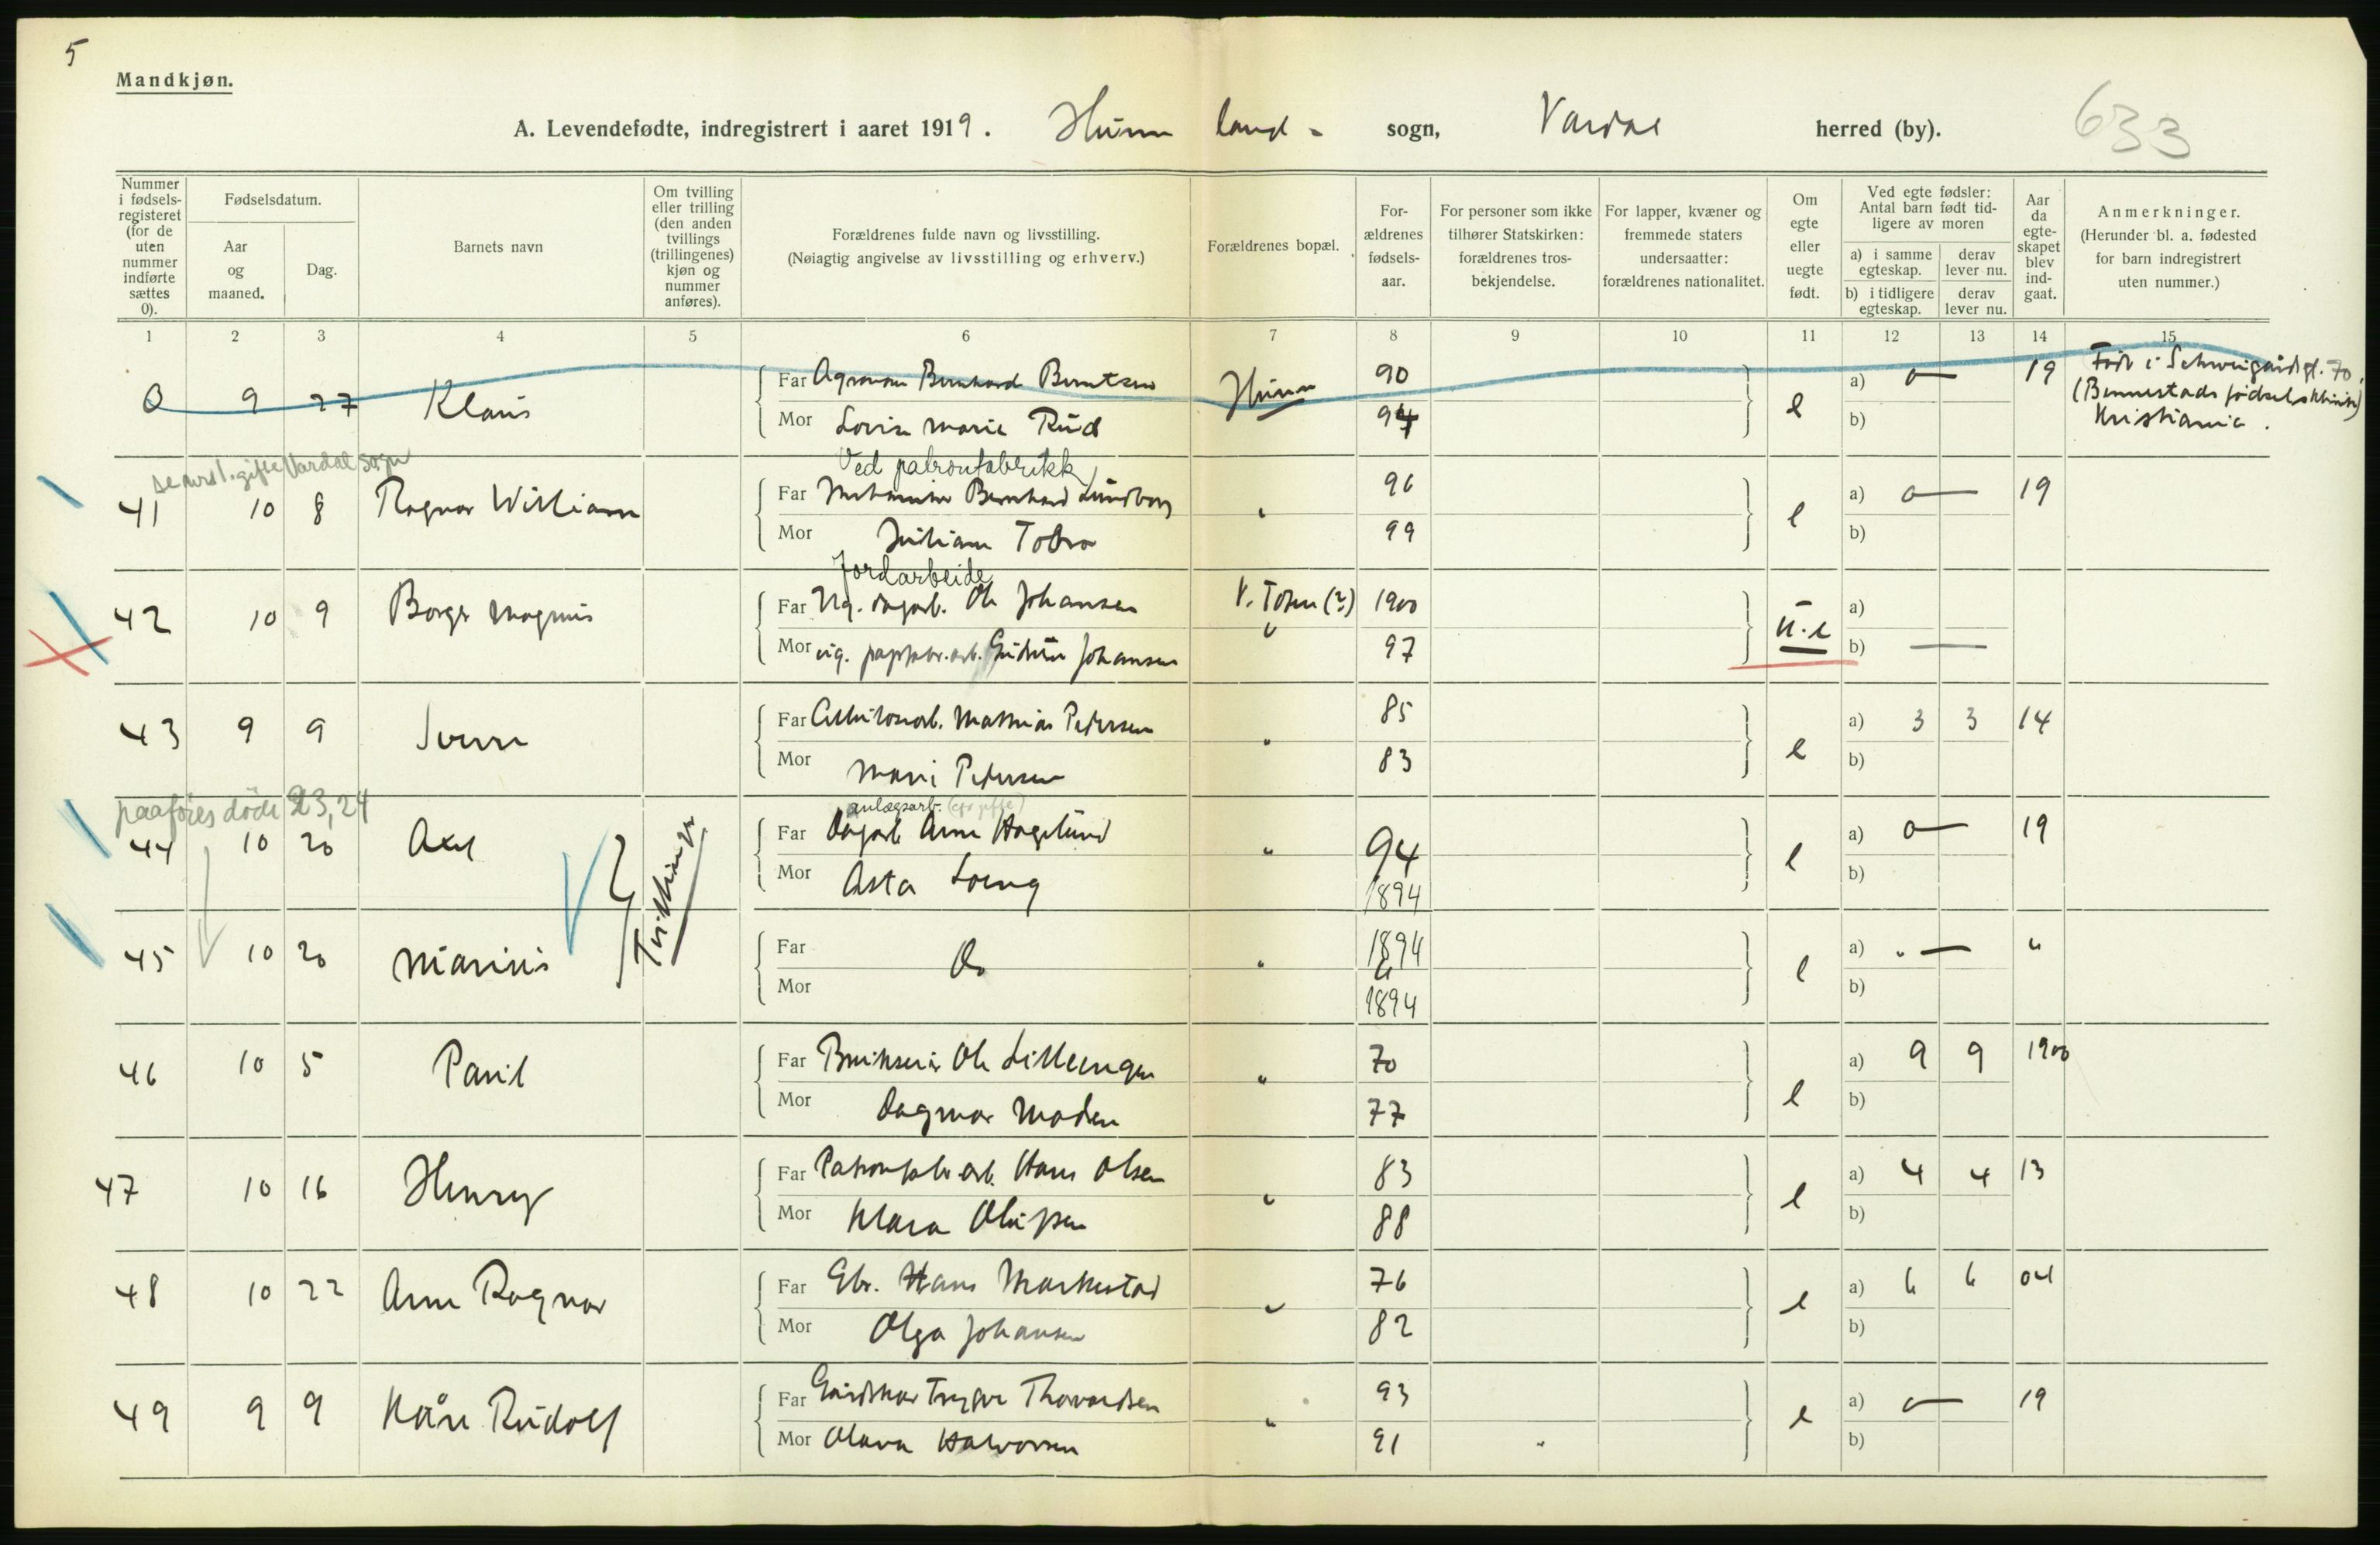 5
Mandkjøn.
A. Levendefødte, indregistrert i aaret 1919. Hunn land- sogn, Vardal herred (by). 633
Nummer i fødselsregisteret (for de uten nummer indførte sættes 0).
Fødselsdatum.
Aar og maaned.
Dag.
Barnets navn
Om tvilling eller trilling (den anden tvillings (trillingenes) kjøn og nummer anføres).
Forældrenes fulde navn og livsstilling.
(Nøiagtig angivelse av livsstilling og erhverv.)
Forældrenes bopæl.
For-ældrenes fødsels-aar.
For personer som ikke tilhører Statskirken: forældrenes tros-bekjendelse.
For lapper, kvæner og fremmede staters undersaatter: forældrenes nationalitet.
Om egte eller uegte født.
Ved egte fødsler: Antal barn født tid-ligere av moren
a) i samme egteskap. derav lever nu.
b) i tidligere egteskap. derav lever nu.
Aar da egte-skapet blev ind-gaat.
Anmerkninger.
(Herunder bl. a. fødested for barn indregistrert uten nummer.)
1 2 3 4 5 6 7 8 9 10 11 12 13 14 15
0 9 27 Klaus Far Agronom Bernhard Berntsen Hunn 90 e a) 0— 19 Født i Schweigaardsgt. 70,
Mor Lovise Marie Rud 94 b) (Bennestads fødselsklinik) Kristiania.
Vardal sogn
Ved patronfabrikk
41 10 8 Ragnar William Far Bernhard Lundborg " 96 e a) 0— 19
Mor 99 b)
Jordarbeide
42 10 9 Borge Magnus Far Ug. dagarb. Ole Johansen V. Toten (?) 1900 u.e a)
Mor ug. papfabr.arb. Gudrun Johansen " 97 b) —
43 9 9 Sverre Far Mathias Pedersen " 85 e a) 3 3 14
Mor Marie Pedersen 83 b)
paaføres døde 23, 24
anlægsarb.
44 10 20 Axel Tvillinger Far Dagarb Arne Hagelund " 94 e a) 0— 19
Mor Asta Loeng 1894 b)
45 10 20 Marius Far Do " 1894 e a) "— "
Mor 1894 b)
46 10 5 Paul Far Brukseier Ole Lilleengen " 70 e a) 9 9 1900
Mor Dagmar Moden 77 b)
47 10 16 Henry Far Patronfabr.arb. Hans Olsen " 83 e a) 4 4 13
Mor Klara 88 b)
48 10 22 Arne Ragnar Far Gbr. Hans Markestad " 76 e a) 6 6 04
Mor Olga Johansen 82 b)
49 9 9 Kåre Rudolf Far Gaardskar Trygve Thorvardsen " 93 e a) 0— 19
Mor Olava Halvorsen 91 " b)